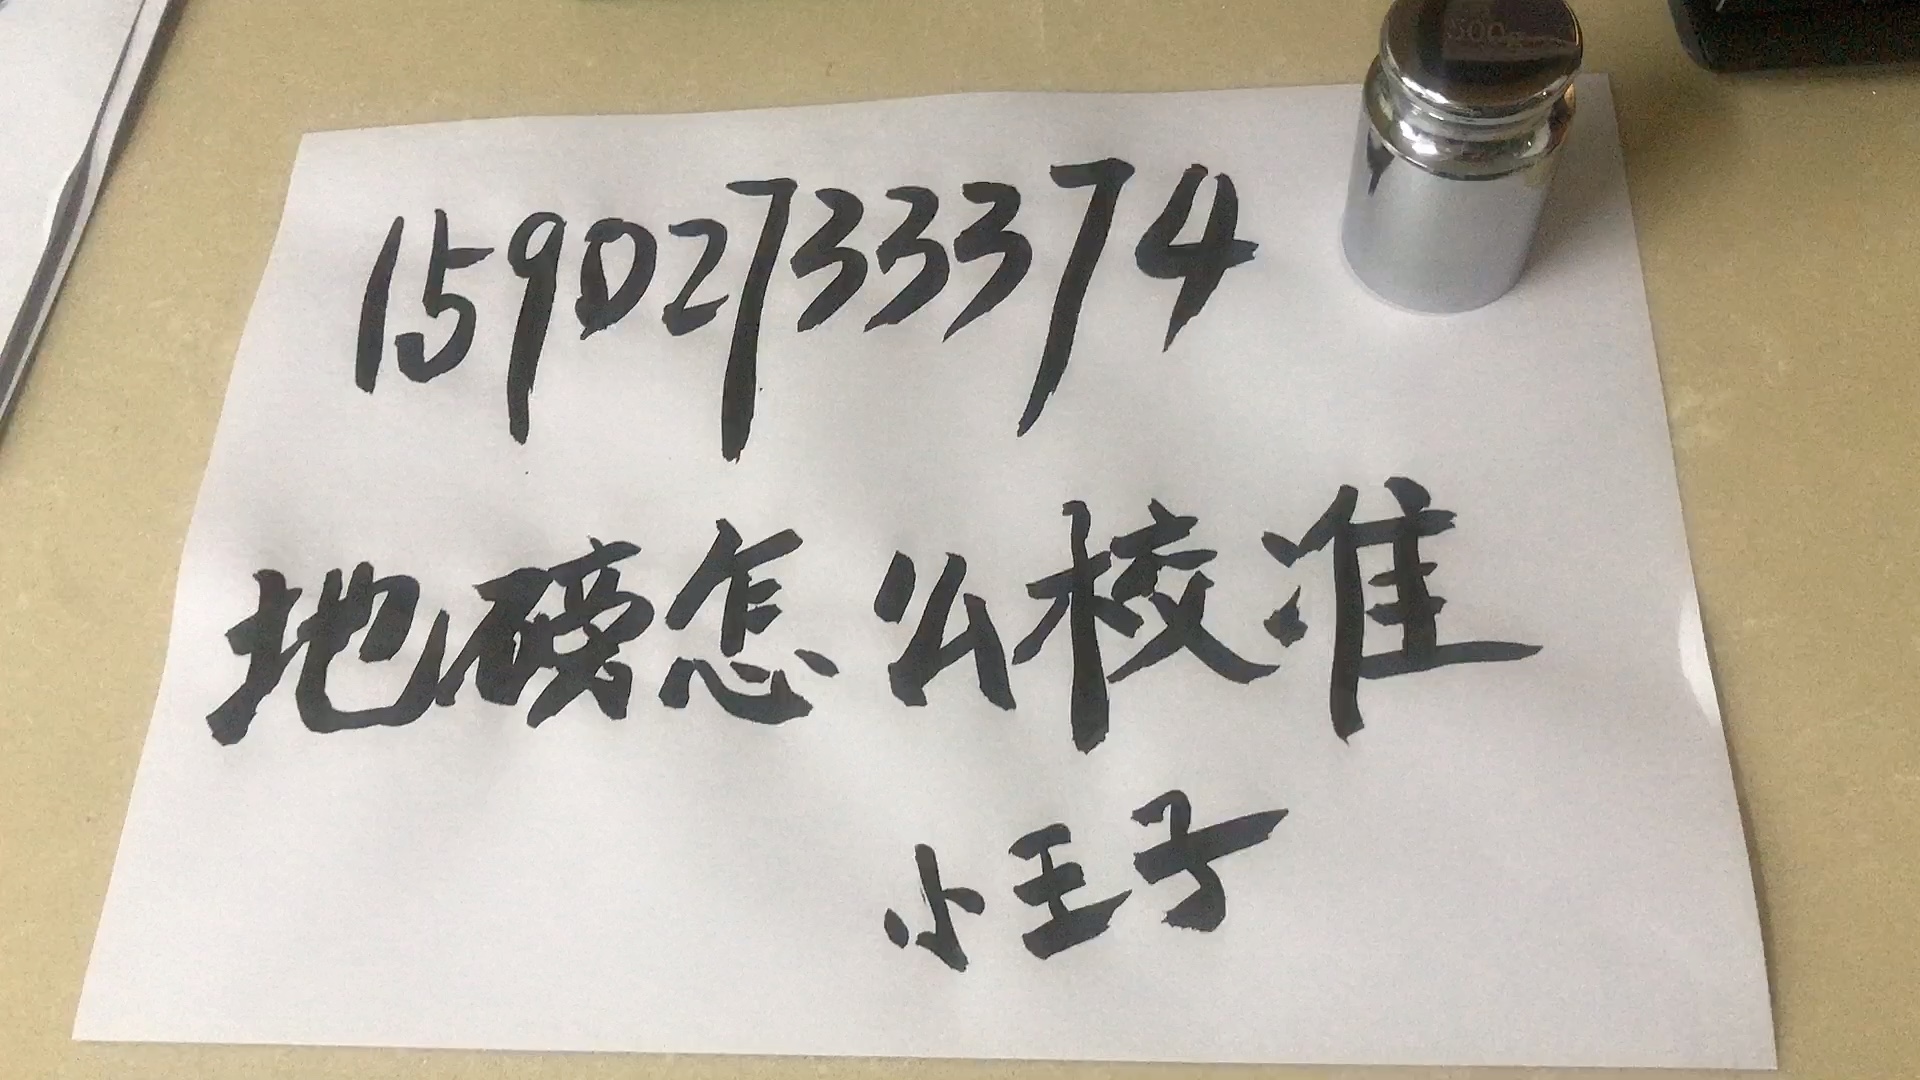 500g
15902733374
地磅怎么校准
小王子